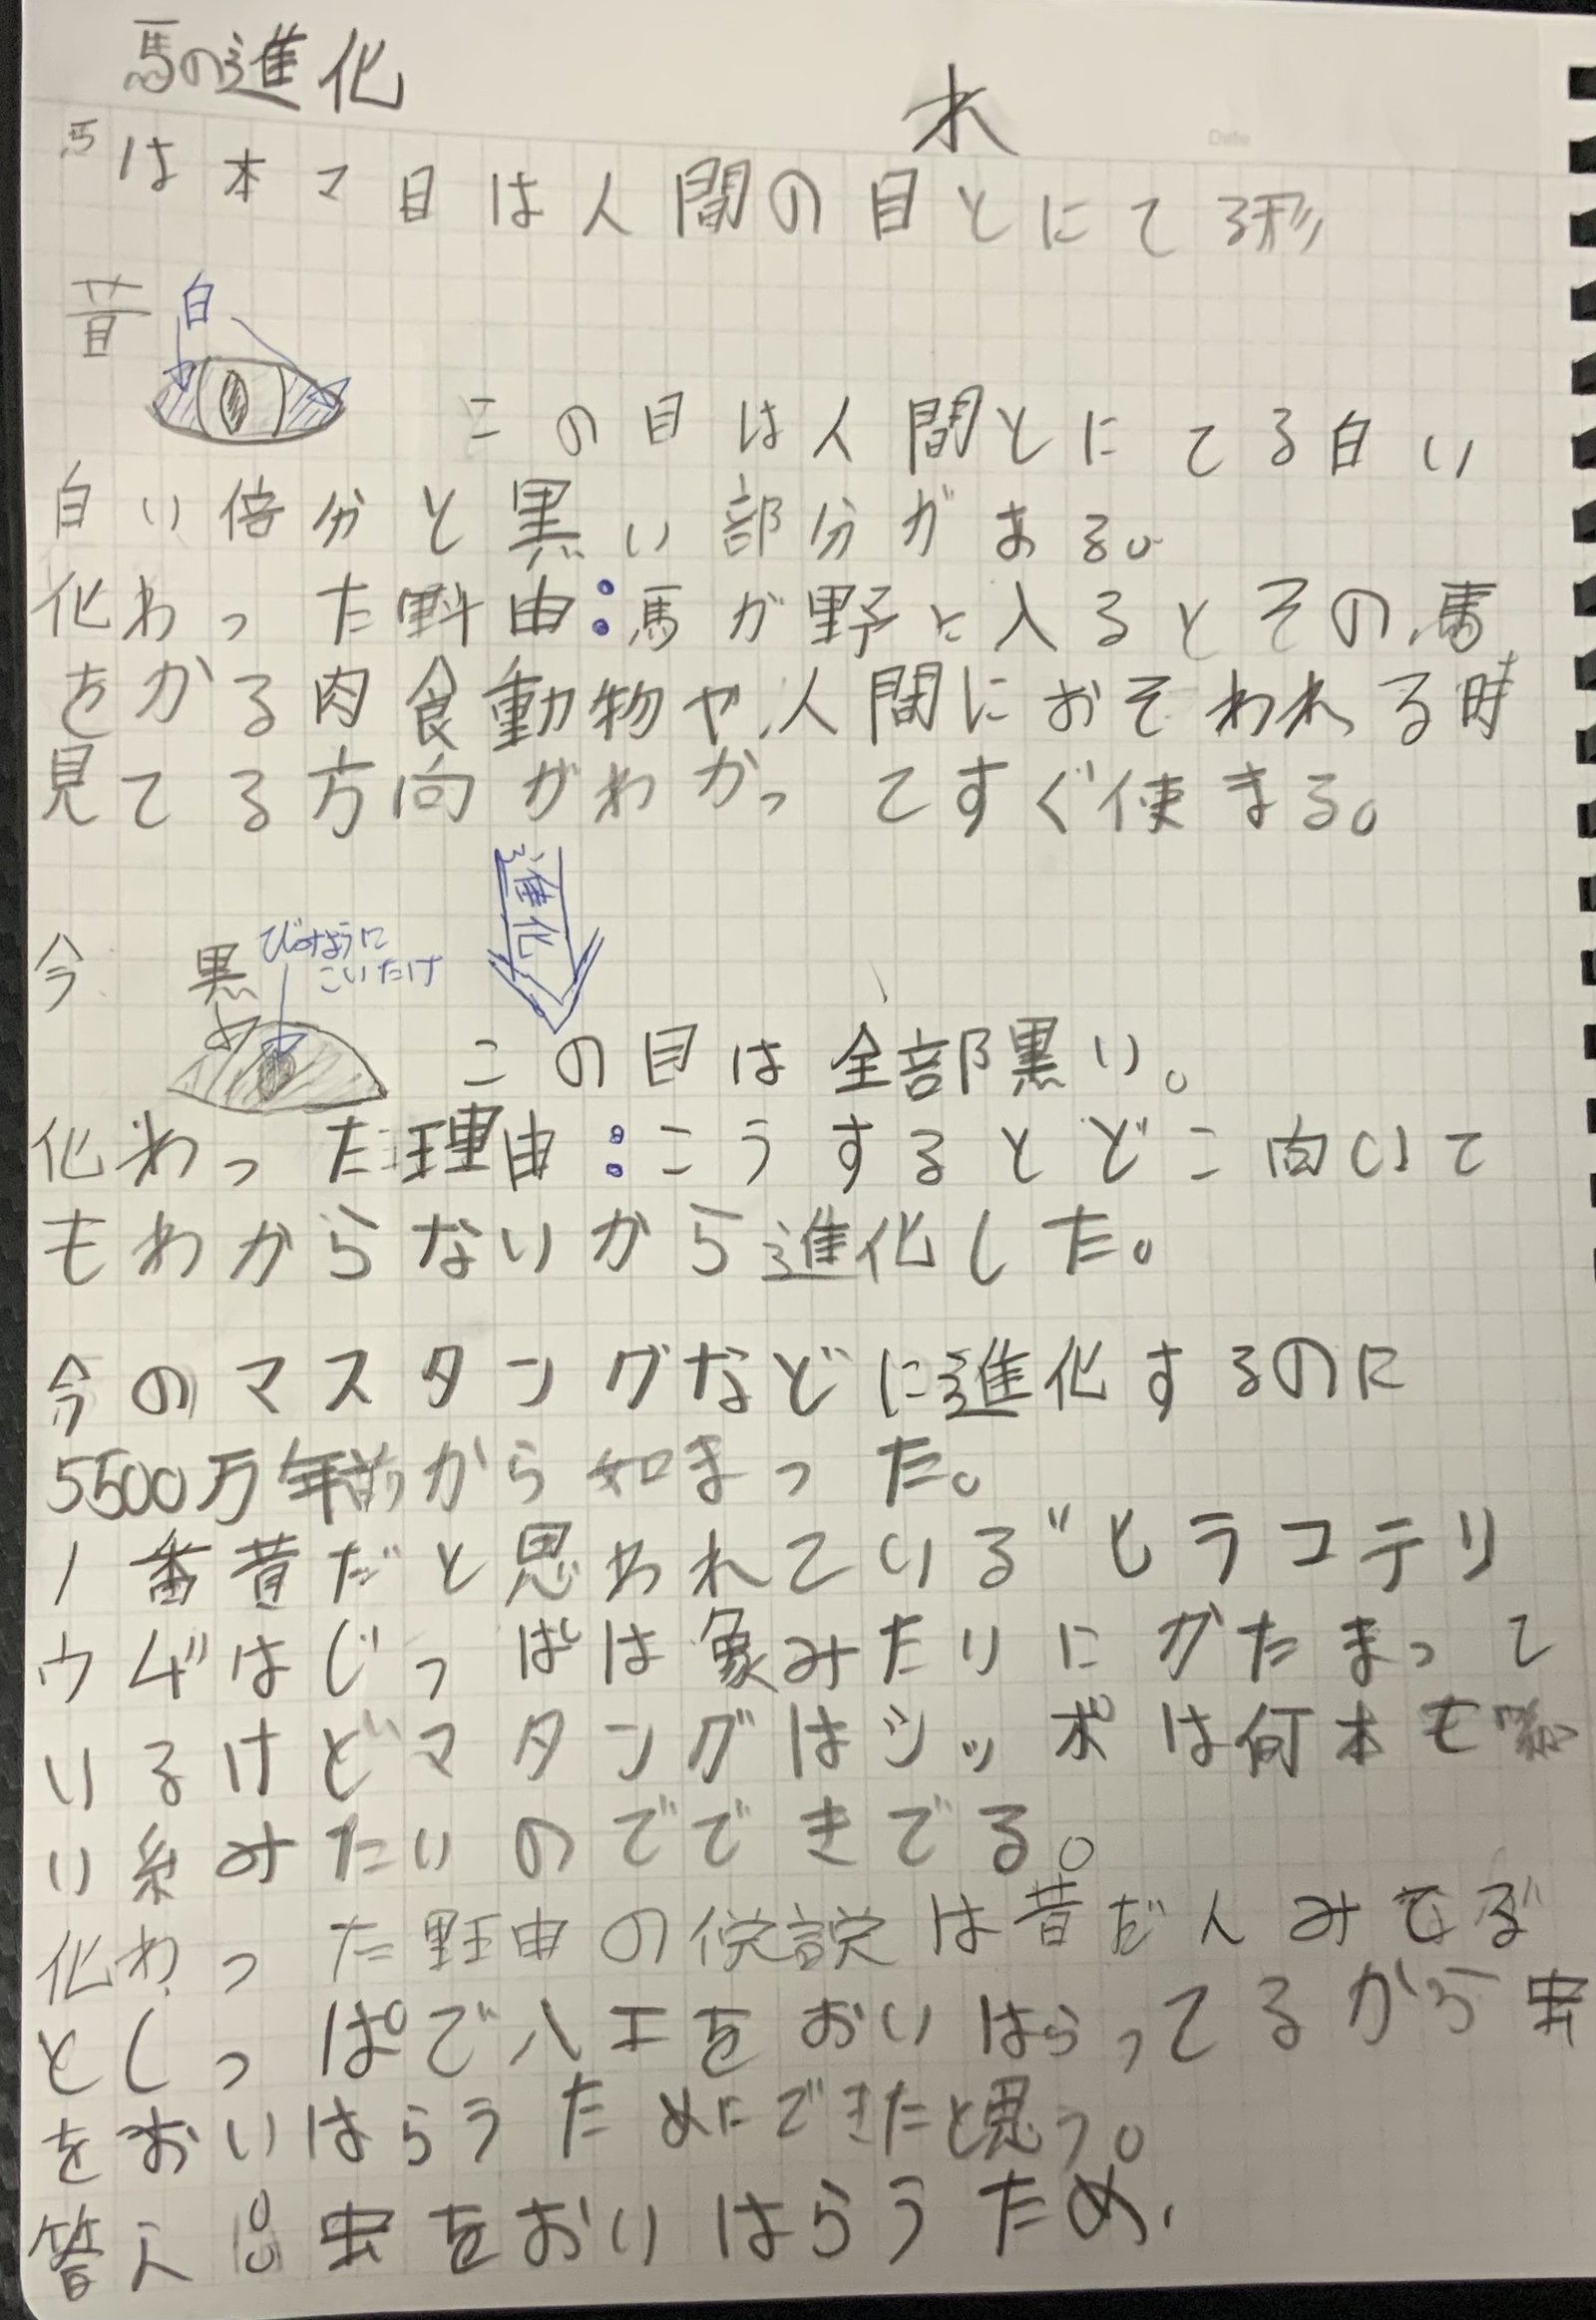 馬の進化
水
馬は本マ目は人間の目とにてる形
昔
白
この目は人間とにてる白い
白い倍分と黒い部分がある。
化わった理由:馬が野に入るとその馬
をかる肉食動物や人間におそわれる時
見てる方向がわかってすぐ使まる。
進化
今
黒
びみように
こいだけ
この目は全部黒い。
化わった理由:こうするとどこ向いて
もわからないから進化した。
今のマスタングなどに進化するのに
5500万年前から始まった。
1番昔だと思われている"ヒラコテリ
ウムはじっぽは象みたいにかたまって
いるけどマタングはシッポは何本も
い糸みたいのでできでる。
化わった理由の仮説は昔だ
としっぱでハエをおいはらってるから虫
をおいはらうためにできたと思う。
答え:虫をおいはらうため.